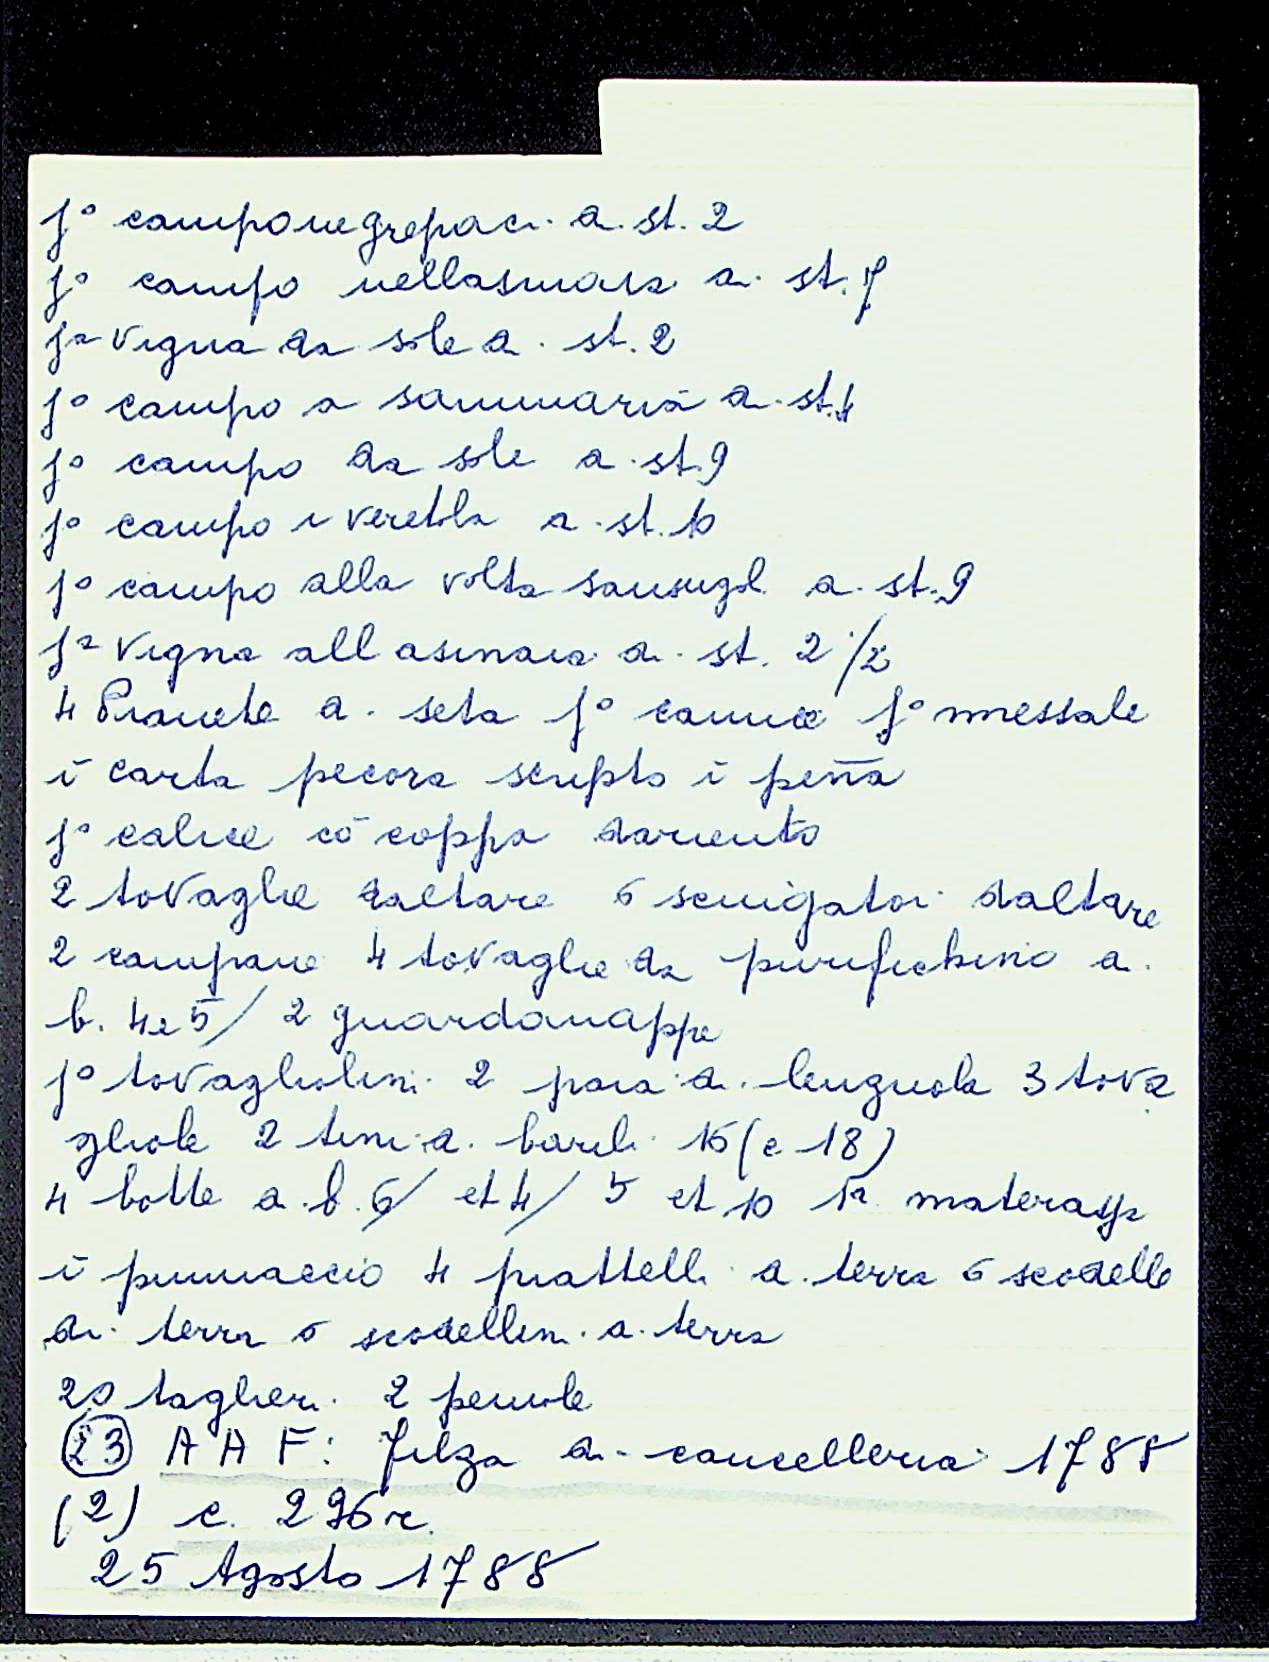 j° campo ne grepaci di st. 2
j° campo nellasinaia di st. 7
jª vigna da sole di st. 2
j° campo a sammaria di st. 4
j° campo da sole di st. 9
j° campo i veretola di st. 10
j° campo alla volta sansugol di st. 9
jª vigna all asinaia di st. 2 1/2
4 Pianete di seta j° camice j° messale
ī carta pecora scripto ī pēna
j° calice cō coppa dariento
2 tovaglie daltare 6 sciugatoi daltare
2 campane 4 tovaglie da di
b. 4 e 5/ 2 guardanappe
j° tovagliolini 2 paia di lenzuola 3 tova
gliole 2 tini di barili 16 (e 18)
4 botte di b. 6/ et 4/ 5 et 10 1ª materassa
ī piumaccio 4 piattelli di terra 6 scodelle
di terra 6 scodellini di terra
20 taglieri 2 pentole
(23) A A F: Filza di cancelleria 1788
(2) c. 296 r.
25 Agosto 1788